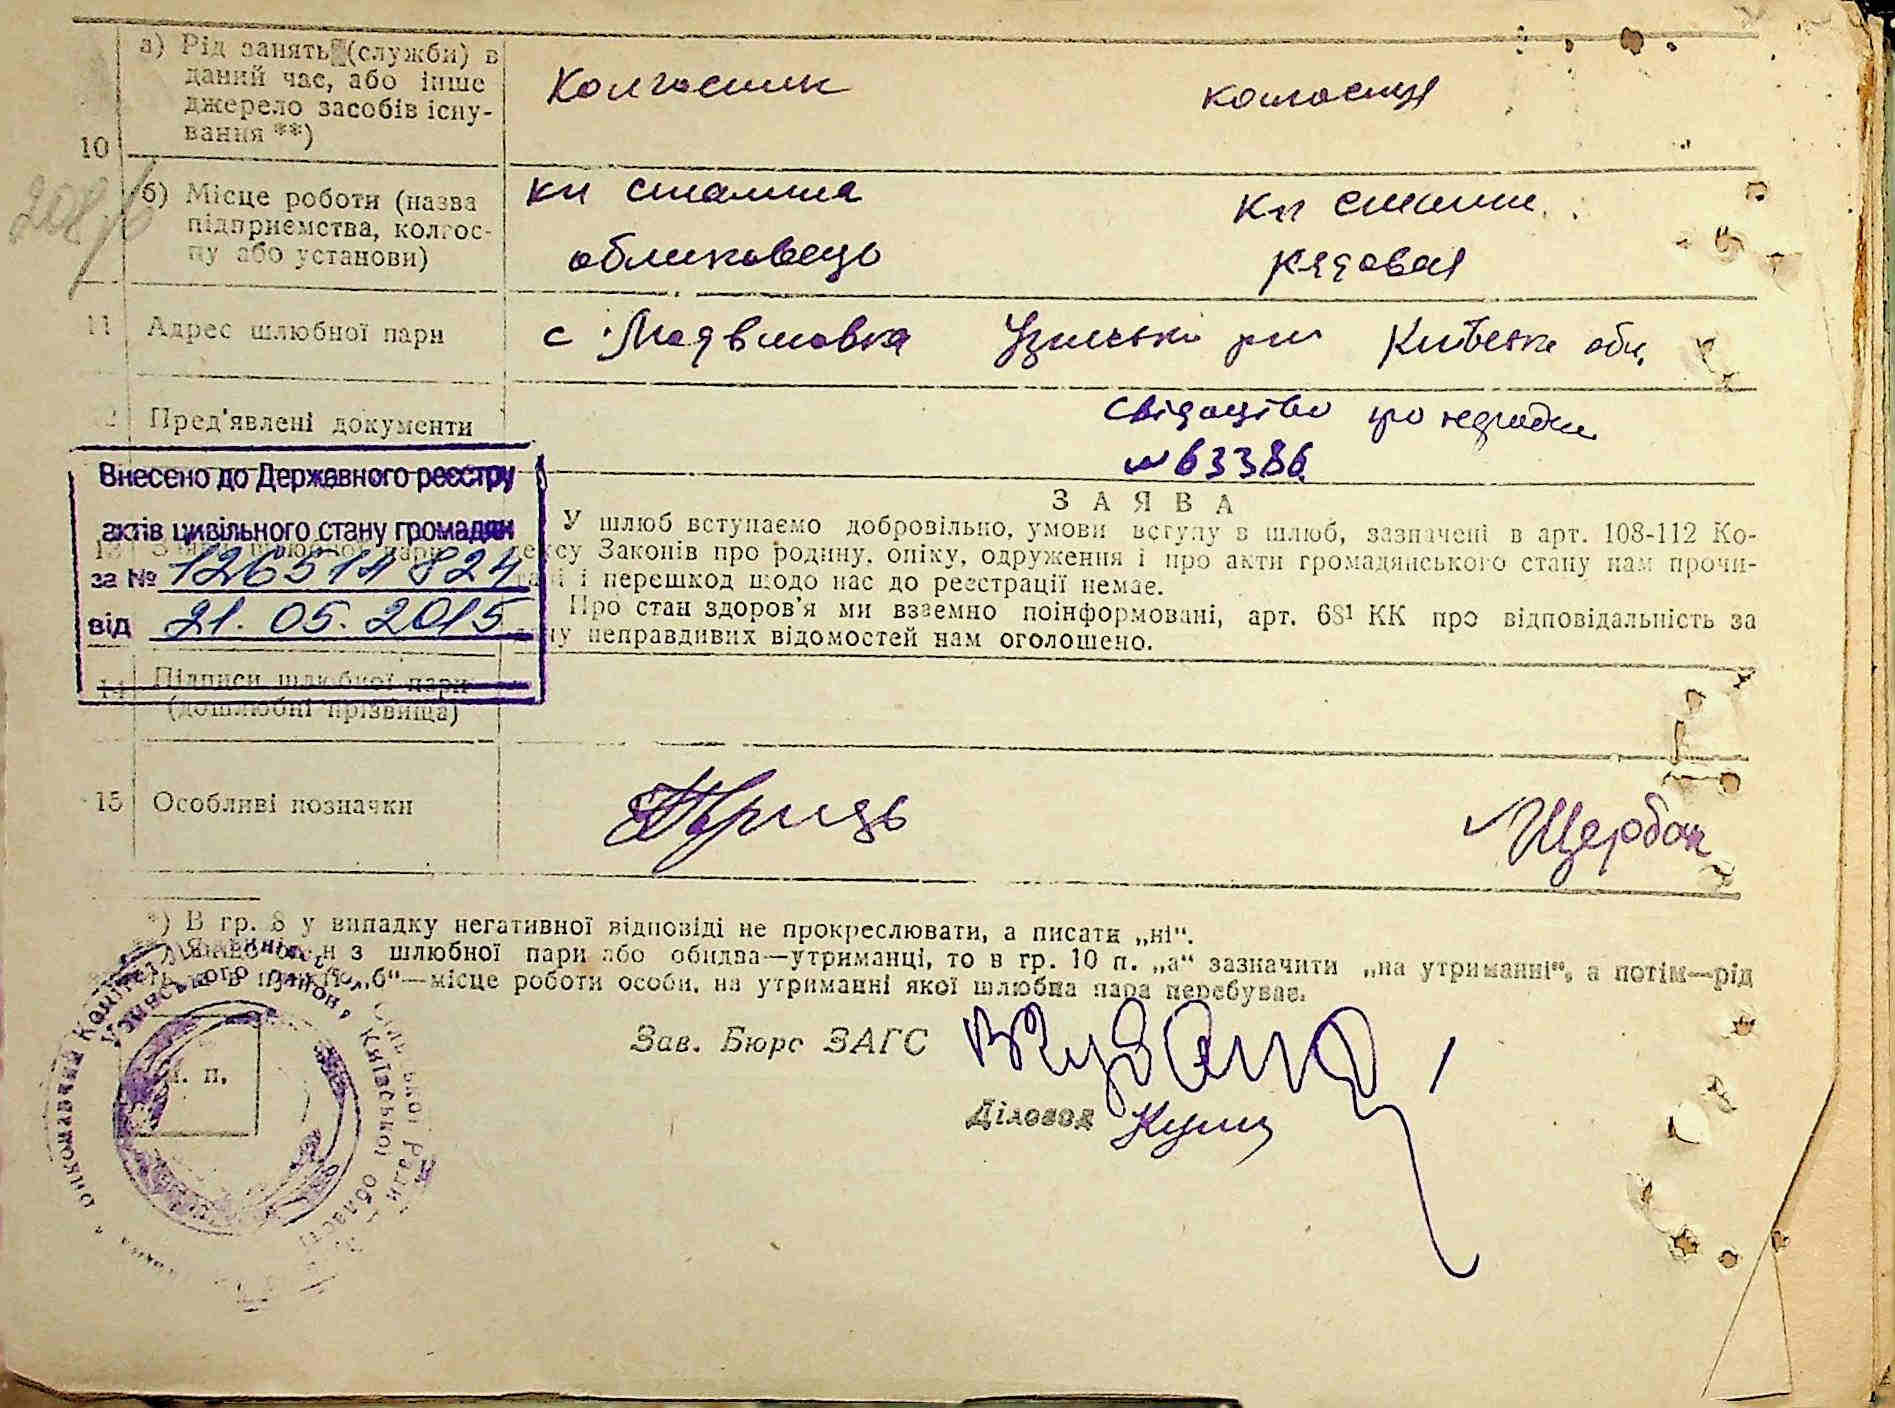 а) Рід занять (служби) в
даний час, або інше
джерело засобів існу-
вання **)
10
Колгоспник
колгоспниця
208/б
б) Місце роботи (назва
підприємства, колгос-
пу або установи)
кп сталіна
обліковець
кп сталіна
рядовая
11 Адрес шлюбної пари
с. Київська обл.
12 Пред'явлені документи
свідоцтво про
№ 63386
Внесено до Державного реєстру
актів цивільного стану громадян
за № 126514824
від 21.05.2015
ЗАЯВА
У шлюб вступаємо добровільно, умови вступу в шлюб, зазначені в арт. 108-112 Ко-
дексу Законів про родину, опіку, одруження і про акти громадянського стану нам прочи-
тані і перешкод щодо нас до реєстрації немає.
Про стан здоров'я ми взаємно поінформовані, арт. 68¹ КК про відповідальність за
дачу неправдивих відомостей нам оголошено.
14 Підписи шлюбної пари
(дошлюбні прізвища)
15 Особливі позначки
Щербак
*) В гр. 8 у випадку негативної відповіді не прокреслювати, а писати „ні“.
з шлюбної пари або обидва—утриманці, то в гр. 10 п. „а“ зазначити „на утриманні“, а потім—рід
„б“—місце роботи особи, на утриманні якої шлюбна пара перебуває.
Зав. Бюро ЗАГС
Діловод Кущ
М. П.
Виконавчий Комітет
Узинського району, Київської області